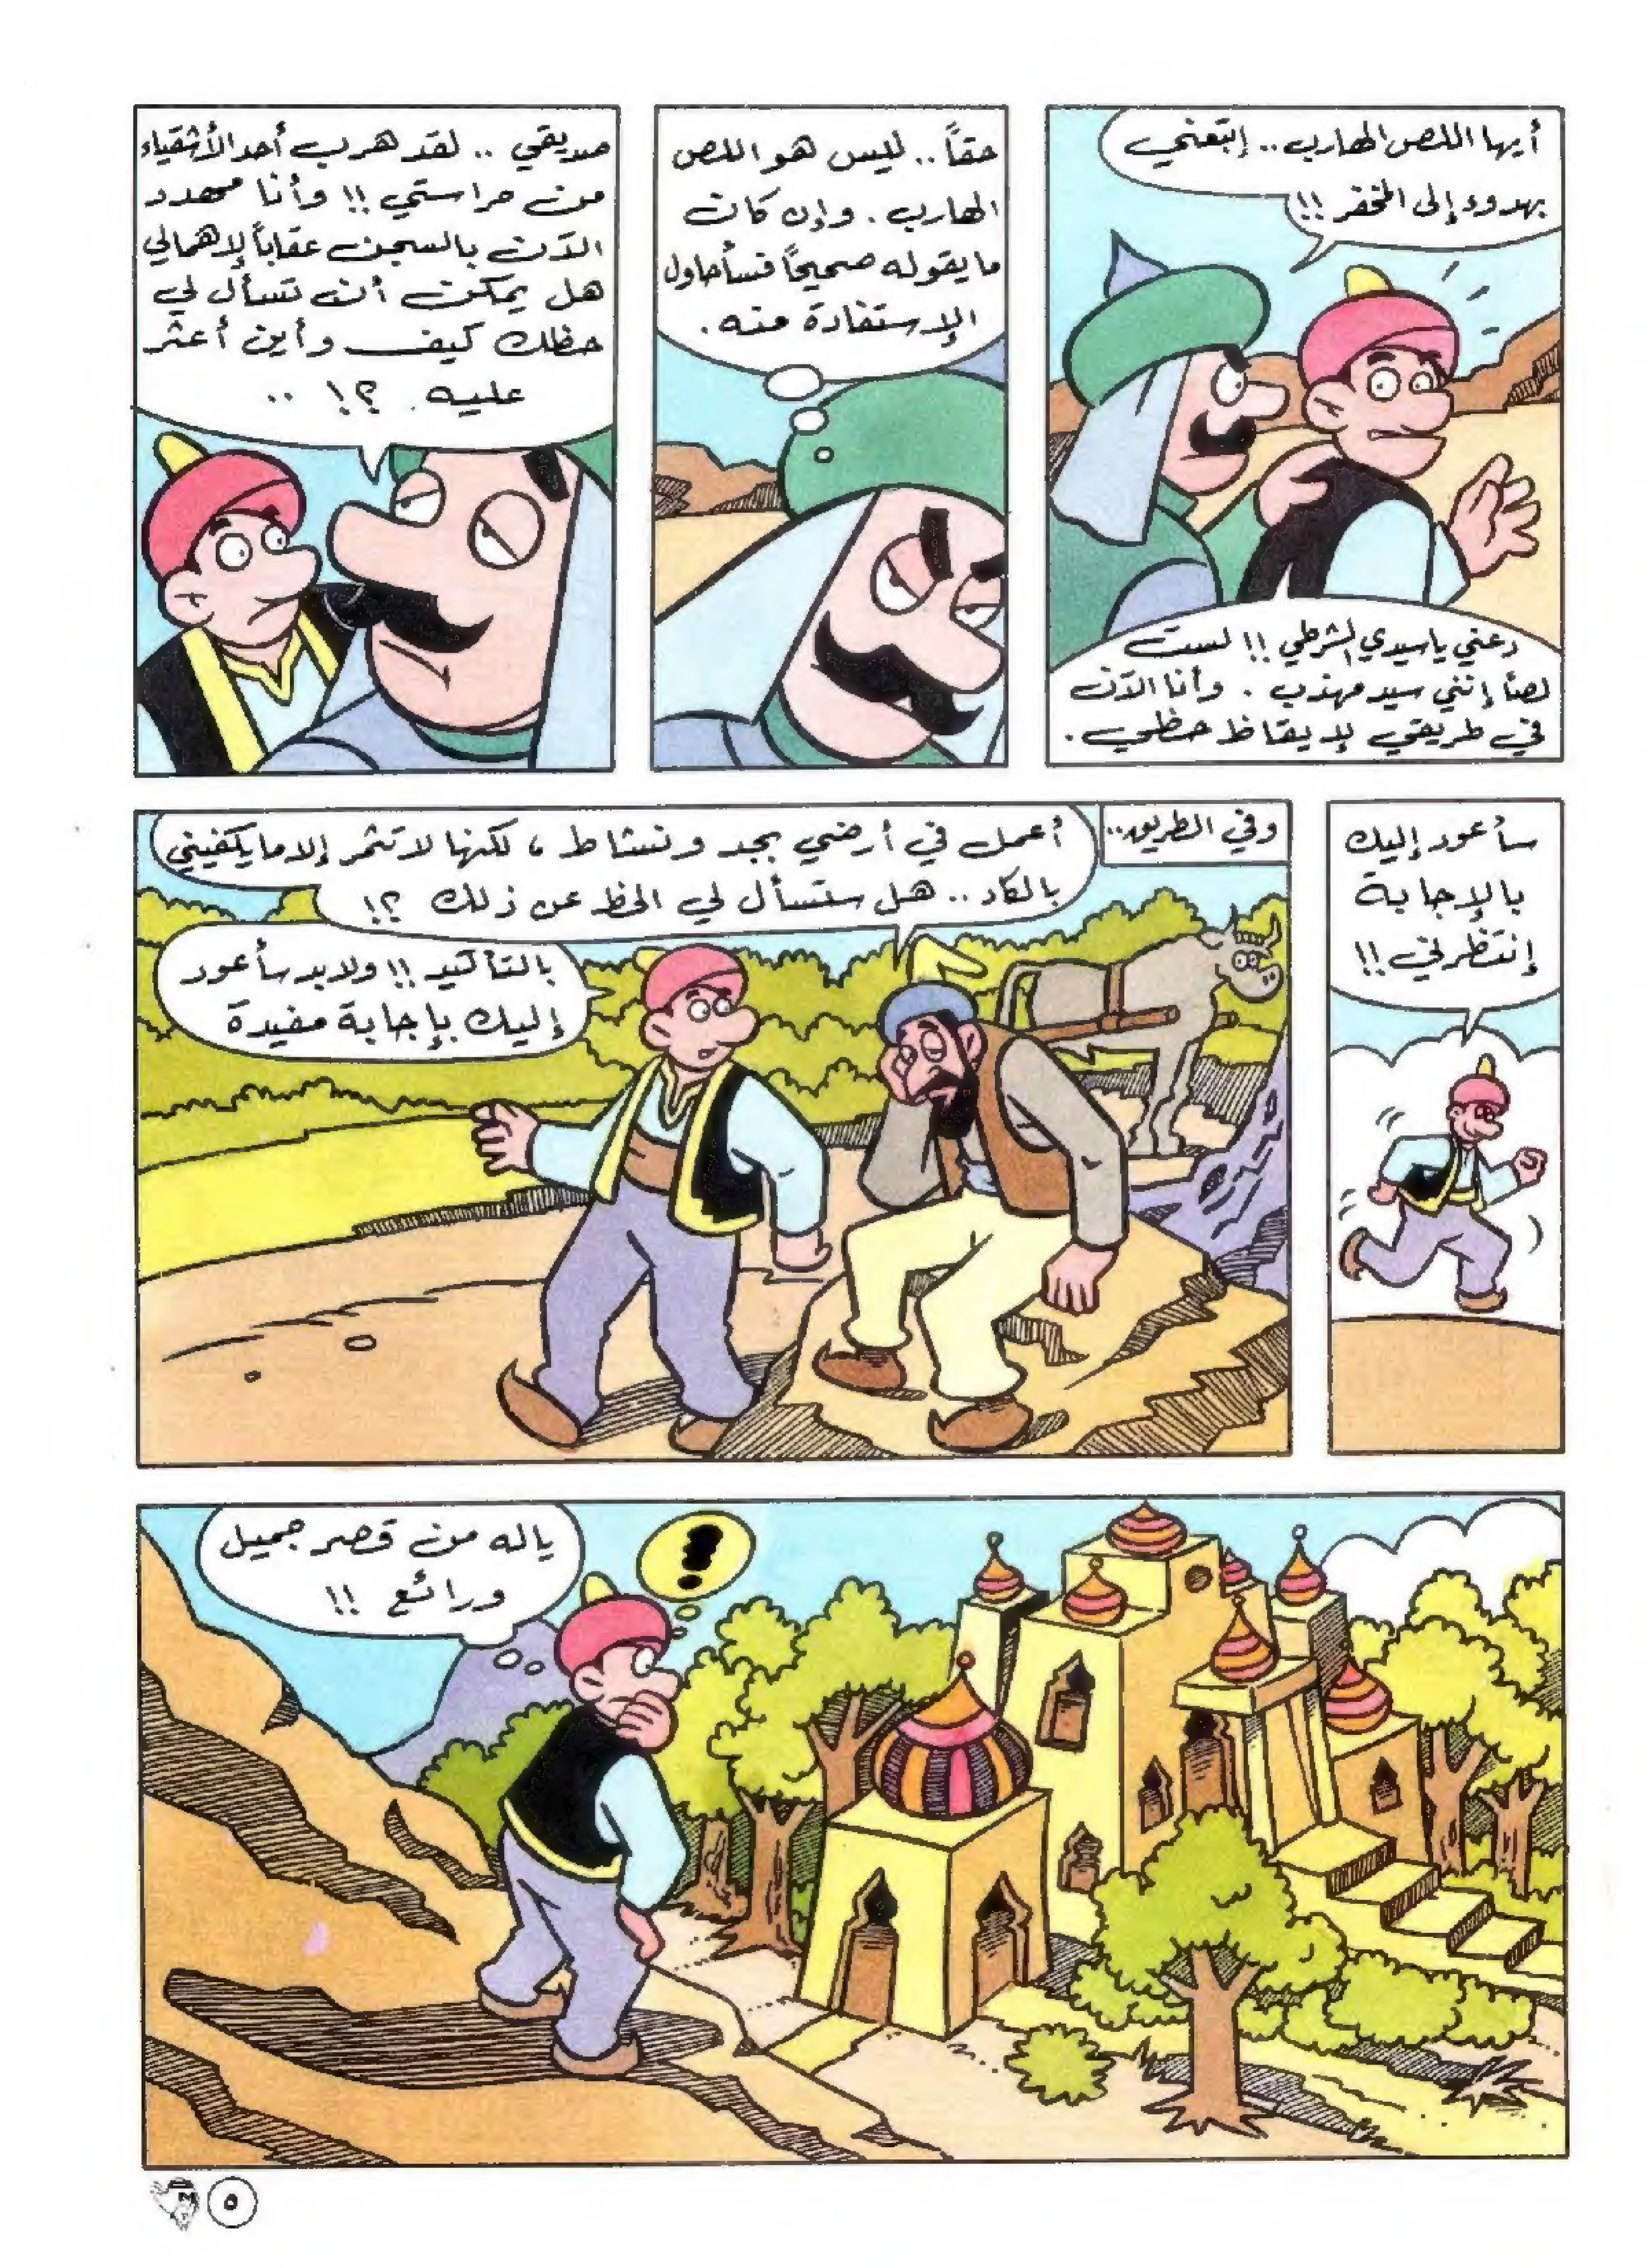 أيها اللص الهارب.. إتبعني
بهدوء إلى المخفر !!
دعني ياسيدي الشرطي !! لست
لصاً إنني سيد مهذب . وأنا الآن
في طريقي لإيقاظ حظي .
حقاً.. ليس هو اللص
الهارب . وإن كان
ما يقوله صحيحاً فسأحاول
الإستفادة منه .
صديقي .. لقد هرب أحد الأشقياء
من حراستي !! وأنا مهدد
الآن بالسجن عقاباً لإهمالي
هل يمكن أن تسأل لي
حظك كيف وأين أعثر
عليه . ؟! ..
سأعود إليك
بالإجابة
إنتظرني !!
وفي الطريق..
أعمل في أرضي بجد ونشاط ، لكنها لا تثمر إلا ما يكفيني
بالكاد .. هل ستسأل لي الحظ عن ذلك ؟!
بالتأكيد !! ولابد سأعود
إليك بإجابة مفيدة
ياله من قصر جميل
ورائع !!
!
٥
M